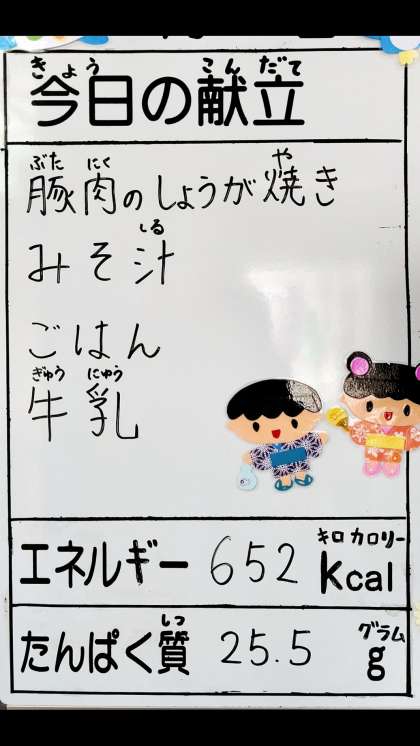 きょう こんだて
今日の献立
ぶた にく や
豚肉のしょうが焼き
しる
みそ汁
ごはん
ぎゅう にゅう
牛乳
キロカロリー
エネルギー 652 kcal
しつ グラム
たんぱく質 25.5 g